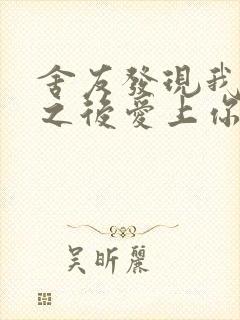 舍友發現我
之後愛上你
吳昕麗